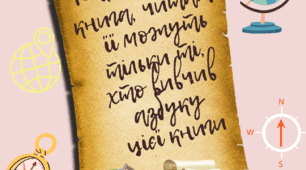 книга, читати
її можуть
тільки ті,
хто вивчив
азбуку
цієї книги
N
S